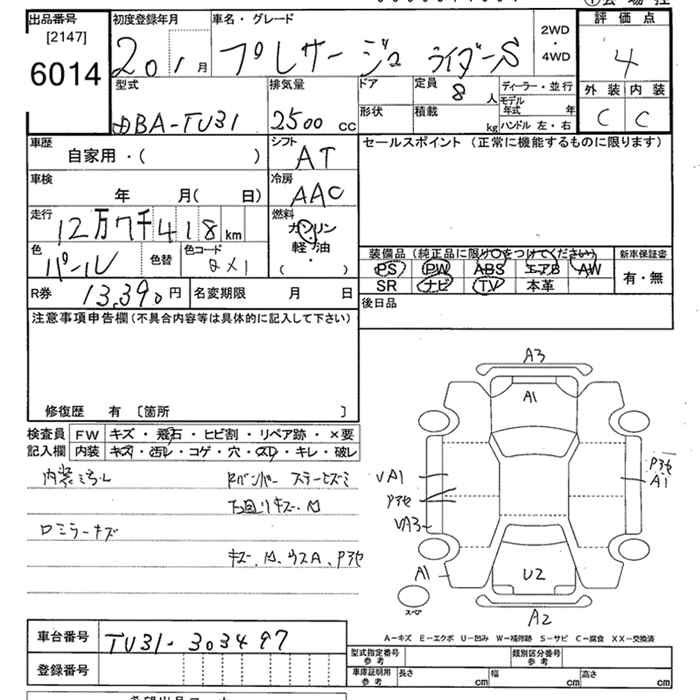 出品番号 初度登録年月 車名・グレード 2WD・4WD 評価点
[2147]
6014 20 1月 プレサージュ ライダーS 4
外装 内装
C C
型式 排気量 ドア 定員 8人 ディーラー・並行
DBA-TU31 2500cc 形状 積載 kg モデル年式 年
ハンドル 左・右
車歴 シフト セールスポイント (正常に機能するものに限ります)
自家用・( ) AT
車検 冷房
年 月( 日) AAC
走行 燃料
12万7千418km ガソリン・軽油・( )
色 色替 色コード
パール QX1
装備品 (純正品に限り○をつけてください) 新車保証書
PS PW ABS エアB AW 有・無
SR ナビ TV 本革
R券 13,390円 名変期限 月 日
後日品
注意事項申告欄 (不具合内容等は具体的に記入して下さい)
修復歴 有 [箇所 ]
検査員 FW キズ・飛石・ヒビ割・リペア跡・×要
記入欄 内装 キズ・汚レ・コゲ・穴・スレ・キレ・破レ
Rバンパー
ロミラーキズ
下廻りキズ・凹
キズ、凹、ウスA、Pアセ
A3
A1
VA1
Pアセ
VA3
A1
Pアセ
A1
U2
スペア
A2
A-キズ E-エクボ U-凹み W-補修跡 S-サビ C-腐食 XX-交換済
車台番号 TU31-303497
登録番号
型式指定番号 参考 類別区分番号 参考
車庫証明用 参考 長さ cm 幅 cm 高さ cm